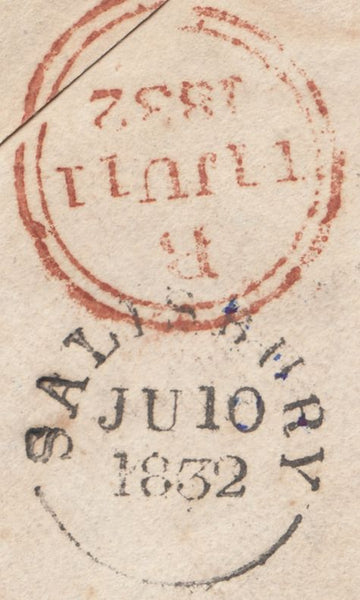 B
11JU11
1832
SALISBURY
JU10
1832